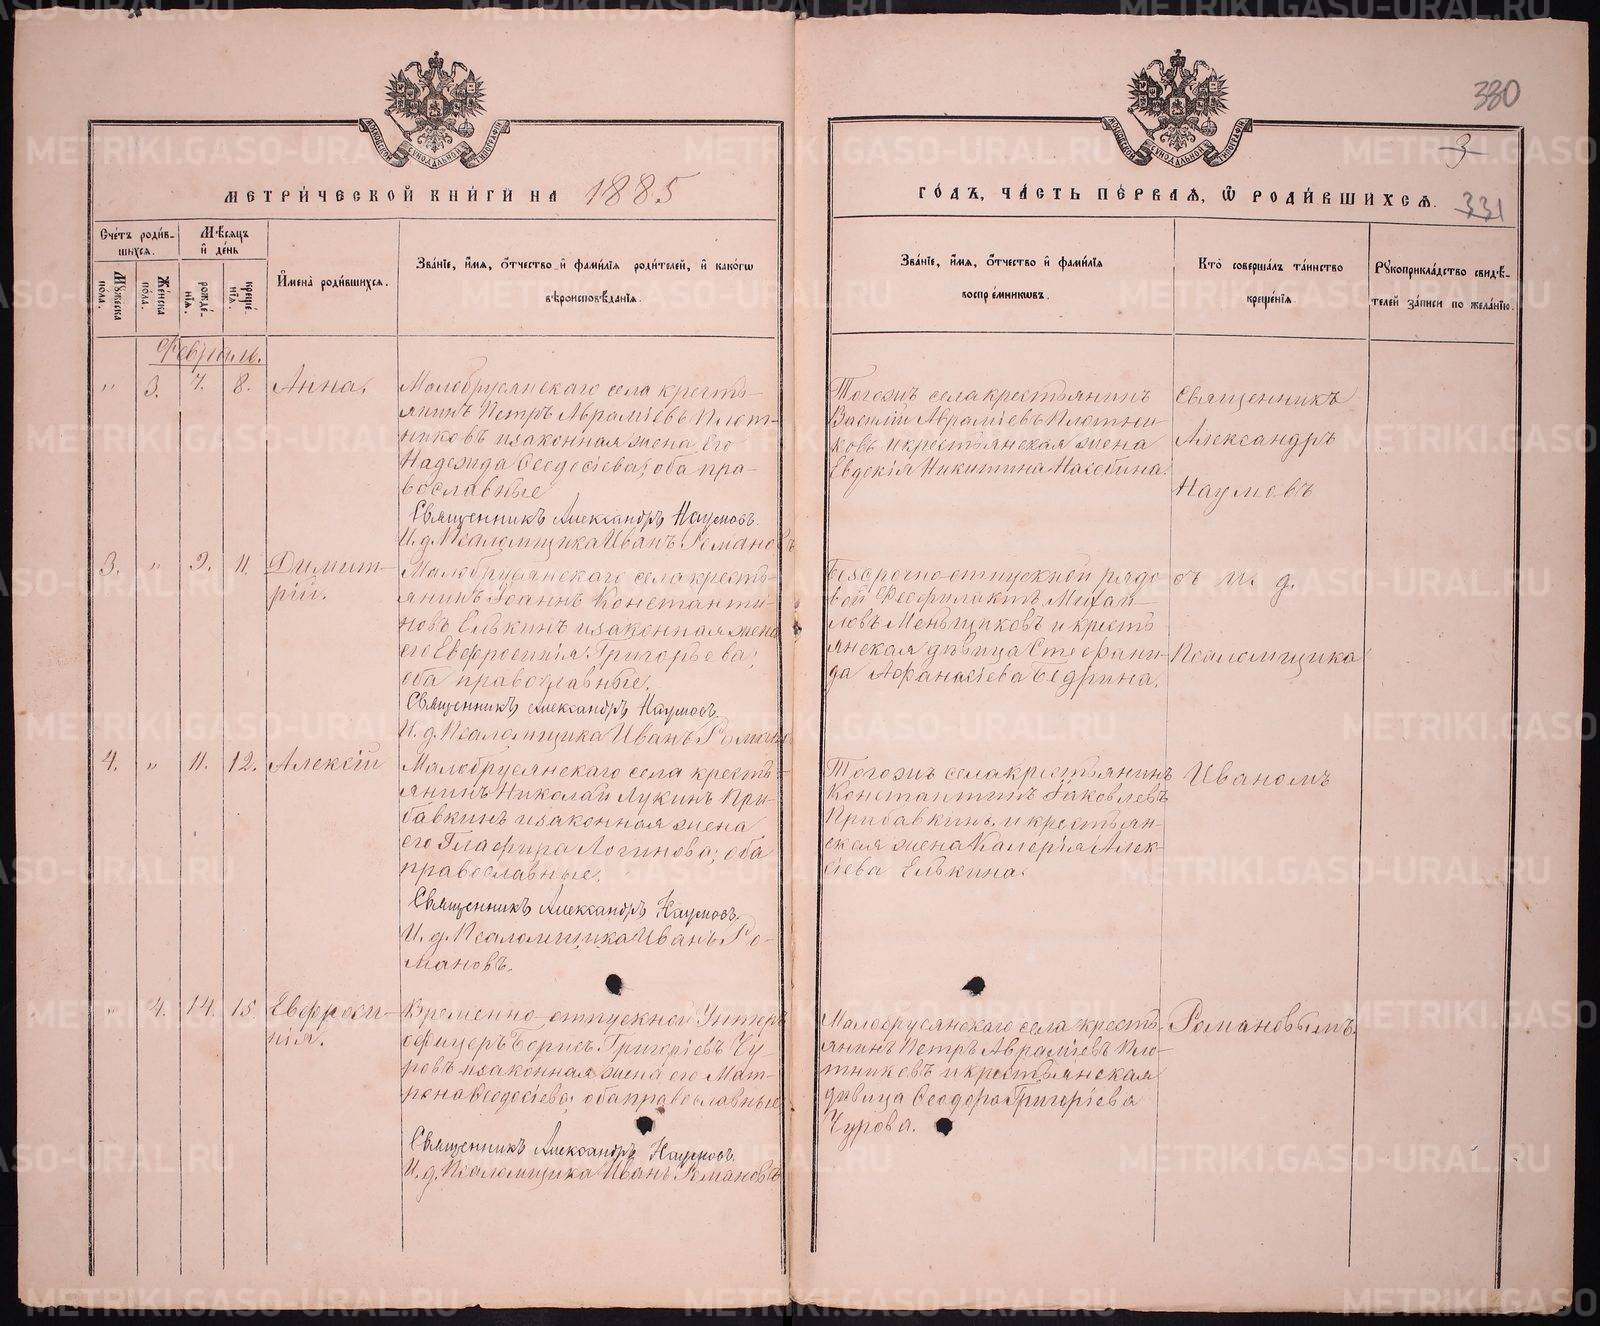 380
3
331
МЕТРИ́ЧЕСКОЙ КНИ́ГИ НА 1885
ГО́ДЪ, ЧА́СТЬ ПЕ́РВАЯ, Ѿ РОДИ́ВШИХСЯ.
Сче́тъ роди́в-
шихся.
Мѣ́сяцъ
и де́нь
Му́жеска по́ла.
Же́нска по́ла.
рожде́-
нія.
креще́-
нія.
Имена̀ роди́вшихся.
Зва́ніе, и́мя, о́тчество и фами́лія роди́телей, и како́гѡ
вѣроисповѣ́данія.
Зва́ніе, и́мя, о́тчество и фами́лія
воспріе́мниковъ.
Кто̀ соверша́лъ та́инство
креще́нія.
Рꙋкоприкла́дство свидѣ́-
телей за́писи по жела́нію.
Февраль.
" 3. 7. 8. Анна.
Малобрусянскаго села кресть-
янинъ Петръ Авраміевъ Плот-
никовъ и законная жена его
Надежда Ѳеодосіева; оба пра-
вославные
Священникъ Александръ Наумовъ.
И. д. Псаломщика Иванъ Романовъ
Тогожъ села крестьянинъ
Василій Авраміевъ Плотни-
ковъ и крестьянская жена
Евдокія Никитина
Священникъ
Александръ
Наумовъ
3. " 9. 11. Димит-
рій.
Малобрусянскаго села кресть-
янинъ Іоаннъ Константи-
новъ Елькинъ и законная жена
его Евфросинія Григорьева;
оба православные.
Священникъ Александръ Наумовъ
И. д. Псаломщика Иванъ Романо
Безсрочно-отпускной рядо-
вой Ѳеофилактъ Михаи-
ловъ Меньщиковъ и кресть-
янская дѣвица Стефани-
да Афанасіева Бедрина.
съ и. д.
Псаломщика
4. " 11. 12. Алексій
Малобрусянскаго села кресть-
янинъ Николай Лукинъ При-
бавкинъ и законная жена
его Глафира Логинова; оба
православные.
Священникъ Александръ Наумовъ
И. д. Псаломщика Иванъ Ро-
мановъ.
Тогожъ села крестьянинъ
Константинъ Іаковлевъ
Прибавкинъ и крестьян-
ская жена Калерія Алек-
сіева Елькина.
Иваномъ
" 4. 14. 15. Евфроси-
нія.
Временно-отпускной Унтеръ
офицеръ Борисъ Григоріевъ Чу-
ровъ и законная жена его Мат-
рона Ѳеодосіева; оба православные
Священникъ Александръ Наумовъ
И. д. Псаломщика Иванъ Романовъ
Малобрусянскаго села кресть-
янинъ Петръ Авраміевъ Пло-
тниковъ и крестьянская
дѣвица Ѳеодора Григоріева
Чурова.
Романовымъ.